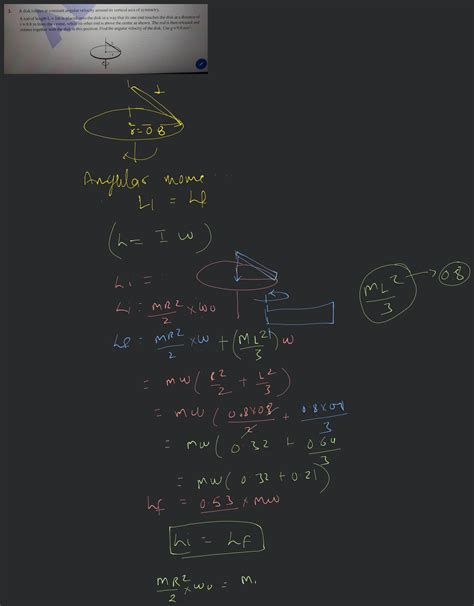 2. A disk rotates at constant angular velocity around its vertical axis of symmetry.
A rod of length L is then placed onto the disk in a way that its one end touches the disk at a distance of
r = 0.8 m from the centre, while its other end is above the centre as shown. The rod is then released and
rotates together with the disk in this position. Find the angular velocity of the disk. Use g = 9.8 m/s²
L
r = 0.8
Angular mome...
Li = Lf
(L = I ω)
Li =
Li = MR²/2 × ω0
Lf = MR²/2 × ω + (ML²/3) ω
ML²/3 → 0.8
= mω ( R²/2 + L²/3 )
= mω ( 0.8×0.8/2 + 0.8×0.8/3 )
= mω ( 0.32 + 0.64/3 )
= mω ( 0.32 + 0.21 )
Lf = 0.53 × mω
Li = Lf
MR²/2 × ω0 = M